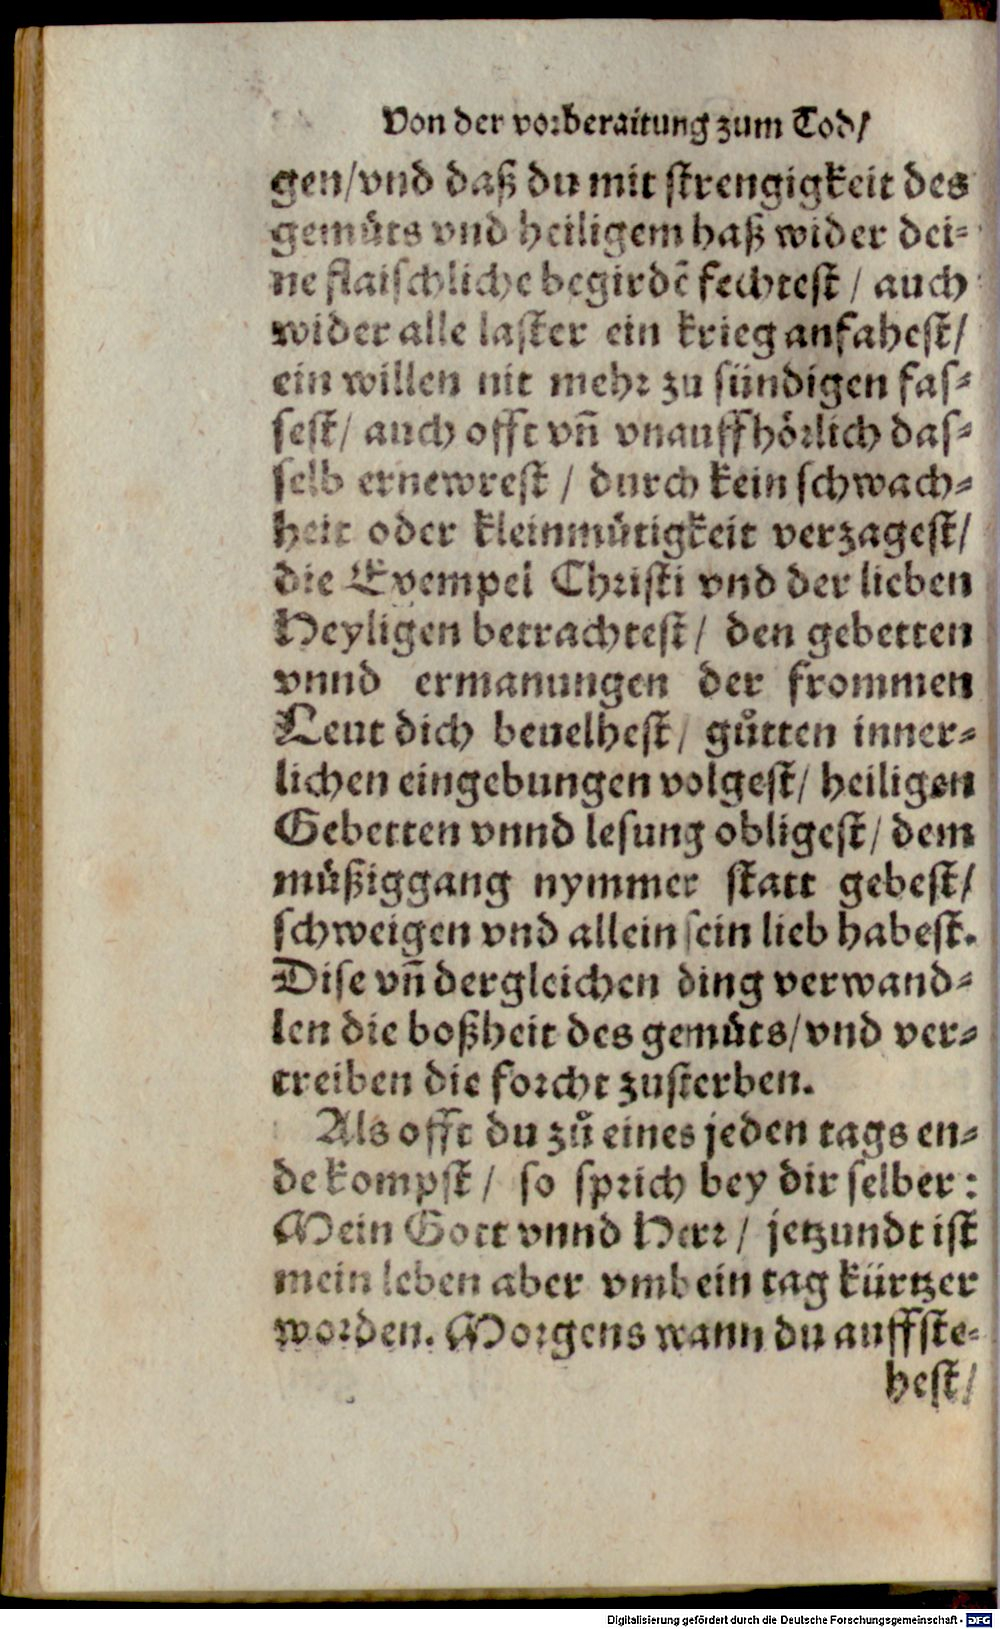 Von der vorberaitung zum Tod/
gen/vnd daß du mit strengigkeit des
gemüts vnd heiligem haß wider dei-
ne flaischliche begirdẽ fechtest / auch
wider alle laster ein krieg anfahest/
ein willen nit mehr zu sündigen fas-
sest/ auch offt vñ vnauffhörlich das-
selb ernewrest / durch kein schwach-
heit oder kleinmütigkeit verzagest/
die Exempel Christi vnd der lieben
Heyligen betrachtest/ den gebetten
vnnd ermanungen der frommen
Leut dich beuelhest/ gůtten inner-
lichen eingebungen volgest/ heiligen
Gebetten vnnd lesung obligest/ dem
müßiggang nymmer statt gebest/
schweigen vnd allein sein lieb habest.
Dise vñ dergleichen ding verwand-
len die boßheit des gemüts/vnd ver-
treiben die forcht zusterben.
Als offt du zů eines jeden tags en-
de kompst/ so sprich bey dir selber:
Mein Gott vnnd Herr/ jetzundt ist
mein leben aber vmb ein tag kürtzer
worden. Morgens wann du auffste-
hest/
Digitalisierung gefördert durch die Deutsche Forschungsgemeinschaft - DFG